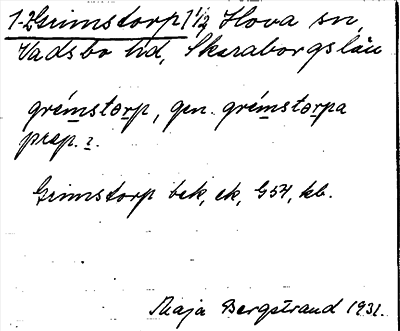 1-2 Grimstorp 1 1/2 Hova sn,
Vadsbo hd, Skaraborgs län
grémstorp, gen. grémstorpa
prep. i.
Grimstorp bek, ek, G54, kb.
Maja Bergstrand 1931.